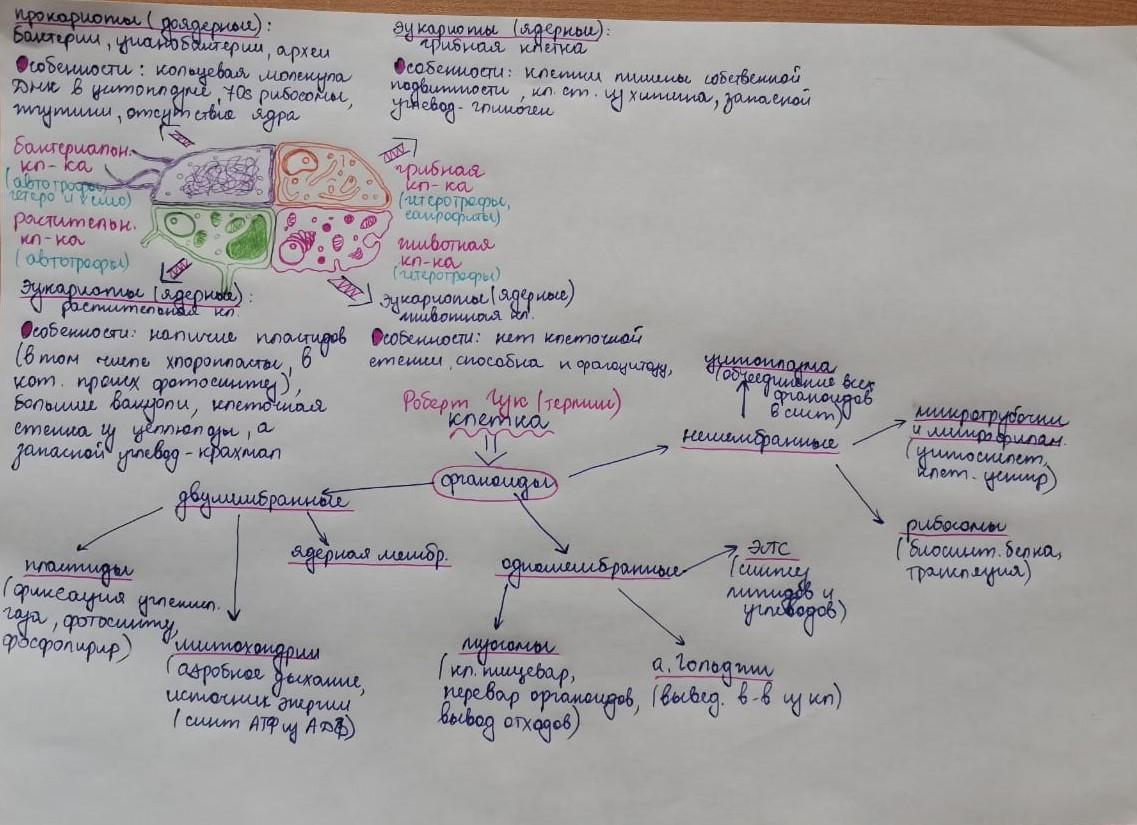 прокариоты (доядерные):
бактерии, цианобактерии, археи
Особенности: кольцевая молекула
ДНК в цитоплазме, 70s рибосомы,
жгутики, отсутствие ядра
эукариоты (ядерные):
грибная клетка
Особенности: клетки лишены собственной
подвижности, кл. ст. из хитина, запасной
углевод - гликоген
бактериальн.
кл-ка
(автотрофы,
гетеро и хемо)
растительн.
кл-ка
(автотрофы)
грибная
кл-ка
(гетеротрофы,
сапрофиты)
животная
кл-ка
(гетеротрофы)
Эукариоты (ядерные):
растительная кл.
Особенности: наличие пластидов
(в том числе хлоропласты, в
кот. происх фотосинтез),
большие вакуоли, клеточная
стенка из целлюлозы, а
запасной углевод - крахмал
Эукариоты (ядерные)
животная кл.
Особенности: нет клеточной
стенки, способна к фагоцитозу,
Роберт Гук (термин)
клетка
органоиды
двумембранные
пластиды
(фиксация углекисл.
газа, фотосинтез,
фосфолирир)
митохондрии
(аэробное дыхание,
источник энергии
(синт АТФ из АДФ)
ядерная мембр.
одномембранные
лизосомы
(кл. пищевар,
перевар органоидов,
вывод отходов)
а. Гольджи
(вывед. в-в из кл)
ЭПС
(синтез
липидов и
углеводов)
немембранные
цитоплазма
(объединение всех
органоидов
в сист)
микротрубочки
и микрофилам.
(цитоскелет,
клет. центр)
рибосомы
(биосинт. белка,
трансляция)